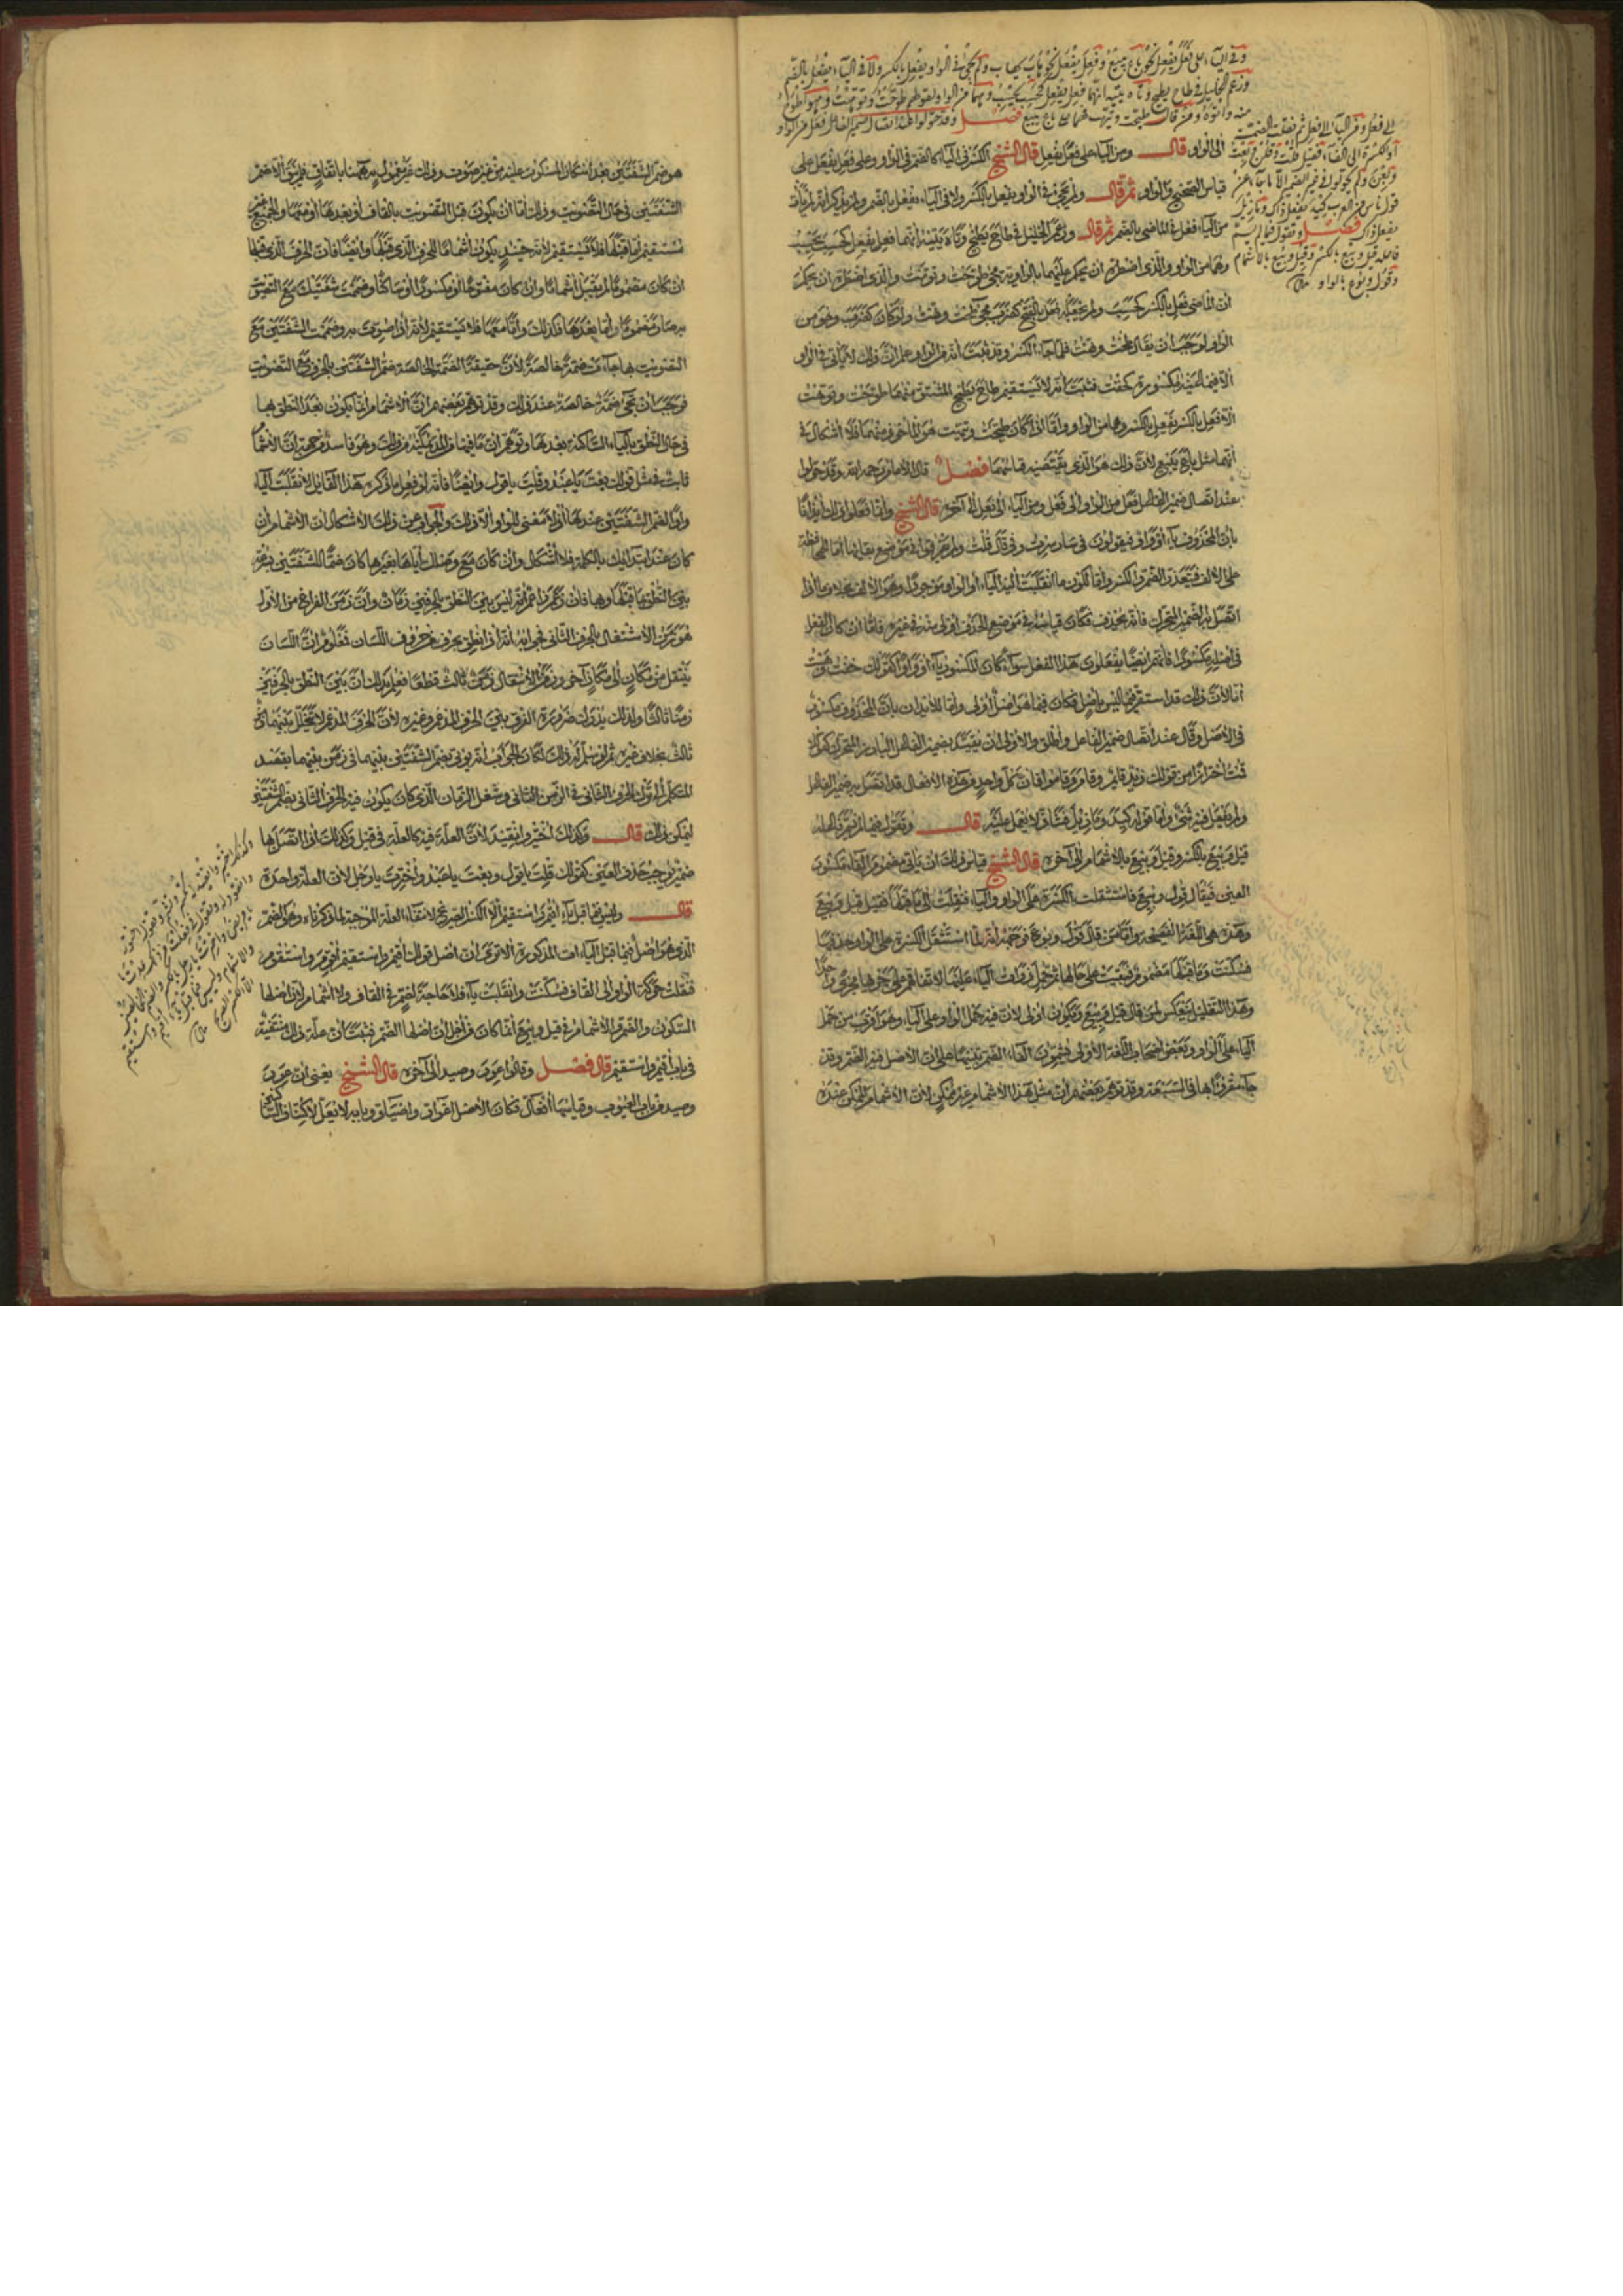 وفي الياء على فعل يفعل نحو باع يبيع وفعل يفعل نحو هاب يهاب ولم يجئ في الواو يفعل بالكسر ولا في الياء يفعل بالضم
وزعم الخليل في طاح يطيح وتاه يتيه أنهما فعل يفعل كحسب يحسب وهما من الواو لقولهم طوحت وتوهت وهو أطوح
منه وأتوه ومن قال طيحت وتيهت فهما على باع يبيع فصل وقد حولوا عند اتصال ضمير الفاعل فعل من الواو
إلى فعل ومن الياء إلى فعل ثم نقلت الضمة
أو الكسرة إلى الفاء فقيل قلت وقلن وبعت
وبعن ولم يحولوا في غير الضمير إلا ما جاء من
قول ناس من العرب كيد يفعل ذاك وما زيل
يفعل ذاك فصل وتقول فيما لم يسم
فاعله قيل وبيع بالكسر وقيل وبيع بالإشمام
وقول وبوع بالواو
إلى الواو قال ومن الياء على فعل يفعل قال الشيخ الكسر في الياء كالضم في الواو وعلى فعل يفعل على
قياس الصحيح والواو ثم قال ولم يجئ في الواو يفعل بالكسر ولا في الياء يفعل بالضم ولم يذكر أنه لم يأت
من الياء فعل في الماضي بالضم ثم قال وزعم الخليل في طاح يطيح وتاه يتيه أنهما فعل يفعل كحسب يحسب
وهما من الواو والذي اضطره أن يحكم عليهما بالواوية مجيء طوحت وتوهت والذي اضطره أن يحكم
أن الماضي فعل بالكسر كحسب ولم يجعله فعل بالفتح كضرب مجيء طحت وتهت ولو كان كضرب وهو من
الواو لوجب أن يقال طحت وتهت فلما جاء الكسر وقد ثبت أنه من الواو علم أن ذلك لا يأتي في الواو
إلا فيما عينه مكسورة كخفت فثبت أنه لا يستقيم طاح يطيح المشتق منهما طوحت وتوهت
إلا فعل بالكسر يفعل بالكسر وهما من الواو وأما إذا كان طيحت وتيهت هو المأخوذ منهما فلا إشكال في
أنهما مثل باع يبيع لأن ذلك هو الذي يقتضيه قياسهما فصل قال الإمام رحمه الله وقد حولوا
عند اتصال ضمير الفاعل فعل من الواو إلى فعل ومن الياء إلى فعل إلى آخره قال الشيخ وإنما فعلوا ذلك إيذانا
بأن المحذوف ياء أو واو فيقولون في سار سرت وفي قال قلت ولم يفرقوا في موضع بقائها أما للمحافظة
على الألف فيتعذر الضم والكسر وإما لكون ما انقلبت إليه الياء أو الواو موجودا وهو الألف بخلاف ما إذا
اتصل به الضمير المتحرك فإنه يحذف فكان قياسه في موضع الحذف أولى منه في غيره فأما إن كان الفعل
في أصله مكسورا فإنهم أيضا يفعلون هذا الفعل سواء كان المكسور ياء أو واوا كقولك خفت وهبت
إما لأن ذلك قد استقر فيما ليس بأصل فكان فيما هو أصل أولى وإما للإيذان بأن المحذوف مكسور
في الأصل وقال عند اتصال ضمير الفاعل وأطلق والأولى أن يقيد بضمير الفاعل البارز المتحرك كقولك
قمت احترازا من قولك زيد قام وقاما وقاموا فإن كل واحد من هذه الأفعال قد اتصل به ضمير الفاعل
ولم يفعل فيه شيء وأما قولهم كيد وما زيل فشاذ لا يعمل عليه قال وتقول فيما لم يسم فاعله
قيل وبيع بالكسر وقيل وبيع بالإشمام إلى آخره قال الشيخ قياس ذلك أن يأتي مضموم الفاء مكسور
العين فيقال قول وبيع فاستثقلت الكسرة على الواو والياء فنقلت إلى ما قبلها فقيل قيل وبيع
وهذه هي اللغة الفصيحة وأما من قال قول وبوع فوجهه أنه لما استثقل الكسرة على الواو حذفها
فسكنت وما قبلها مضموم فبقيت على حالها ثم حمل ذوات الياء عليها لاتفاقهم على جريها مجرى واحدا
وهذا التعليل ينعكس لمن قال قيل وبيع ويكون أولى لأن فيه حمل الواو على الياء وهو أقرب من حمل
الياء على الواو وبعض أصحاب اللغة الأولى يشمون الفاء الضم تنبيها على أن الأصل فيه الضم وقد
جاء مقروءا بها في السبعة وقد توهم بعضهم أن مثل هذا الإشمام غير ممكن لأن الإشمام الممكن عنده
هو ضم الشفتين بعد إسكان المسكون عليه من غير صوت وذلك غير مقول به ههنا باتفاق فلم يبق إلا ضم
الشفتين في حال التصويت وذلك إما أن يكون قبل التصويت بالقاف أو بعدها أو معها والجميع غير
مستقيم أما قبلها فلا يستقيم لأنه حينئذ يكون إشماما للحرف الذي قبلها وأيضا فإن الحرف الذي قبلها
إن كان مضموما لم يقبل إشماما وإن كان مفتوحا أو مكسورا أو ساكنا وضممت شفتيك مع التصويت
به صار مضموما وأما بعدها فكذلك وأما معها فلا يستقيم لأنه إذا صوت به وضممت الشفتين مع
التصويت بها جاءت ضمة خالصة لأن حقيقة الضمة الخالصة ضم الشفتين بالحرف مع التصويت
فوجب أن تجيء ضمة خالصة عند ذلك وقد توهم بعضهم أن الإشمام إنما يكون بعد النطق بها
في حال النطق بالياء الساكنة بعدها وتوهم أن مافيها من المد يمكنه من ذلك وهو فاسد من جهة أن الإشمام
ثابت في مثل قولك بعت يا عبد وقلت يا قول وأيضا فإنه لو فعل ما ذكره هذا القائل لانقلبت الياء
واوا لضم الشفتين عندها إذ لا معنى للواو إلا ذلك والجواب عن ذلك الإشكال أن الإشمام إن
كان عند ابتدائك بالكلمة فلا إشكال وإن كان مع وصلك إياها بغيرها كان ضما للشفتين بعد
بين النطق بما قبلها وبها فإن زعم زاعم أنه ليس بين النطق بالحرفين زمان وأن زمن الفراغ من الأول
هو زمن الاشتغال بالحرف الثاني فجوابه أنه إذا نطق بحرف من حروف اللسان فمعلوم أن اللسان
ينتقل من مكان إلى مكان آخر وزمن الانتقال زمن ثالث قطعا فعلم بذلك أن بين النطق بالحرفين
زمنا ثالثا ولذلك يدرك ضرورة الفرق بين الحرف المدغم وغيره لأن الحرف المدغم لا يتخلل بينهما زمن
ثالث بخلاف غيره ثم لو سلم أنه ذلك لكان الجواب أنه يؤتى بضم الشفتين بينهما في زمن بينهما يقصد
المتكلم إلى ترك الحرف الثاني في الزمن الثاني وشغل الزمان الذي كان يكون فيه الحرف الثاني بضم الشفتين
ليمكن ذلك قال وكذلك اختير وانقيد لأن العلة فيه كالعلة في قيل وكذلك إذا اتصل بها
ضمير يوجب حذف العين كقولك قلت يا قول وبعت يا عبد واخترت يا رجل لأن العلة واحدة
قال وليس فيما قبل ياء أقيم واستقيم إلا الكسر الصريح لانتفاء العلة الموجبة لما ذكرناه وهو الضم
الذي هو أصل فيما قبل الياءات المذكورة ألا ترى أن أصل قولك أقيم واستقيم أقوم واستقوم
فنقلت حركة الواو إلى القاف فسكنت وانقلبت ياء فلا حاجة لضم في القاف ولا إشمام لأن أصلها
السكون والضم والإشمام في قيل وبيع إنما كان من أجل أن أصلها الضم فثبت أن علة ذلك منتفية
في باب أقيم واستقيم قال فصل وقالوا عور وصيد إلى آخره قال الشيخ يعني أن عور
وصيد من باب العيوب وقياسها افعال فكان الأصل اعوار واصياد وبابه لا يعل لاكتناف الساكنين